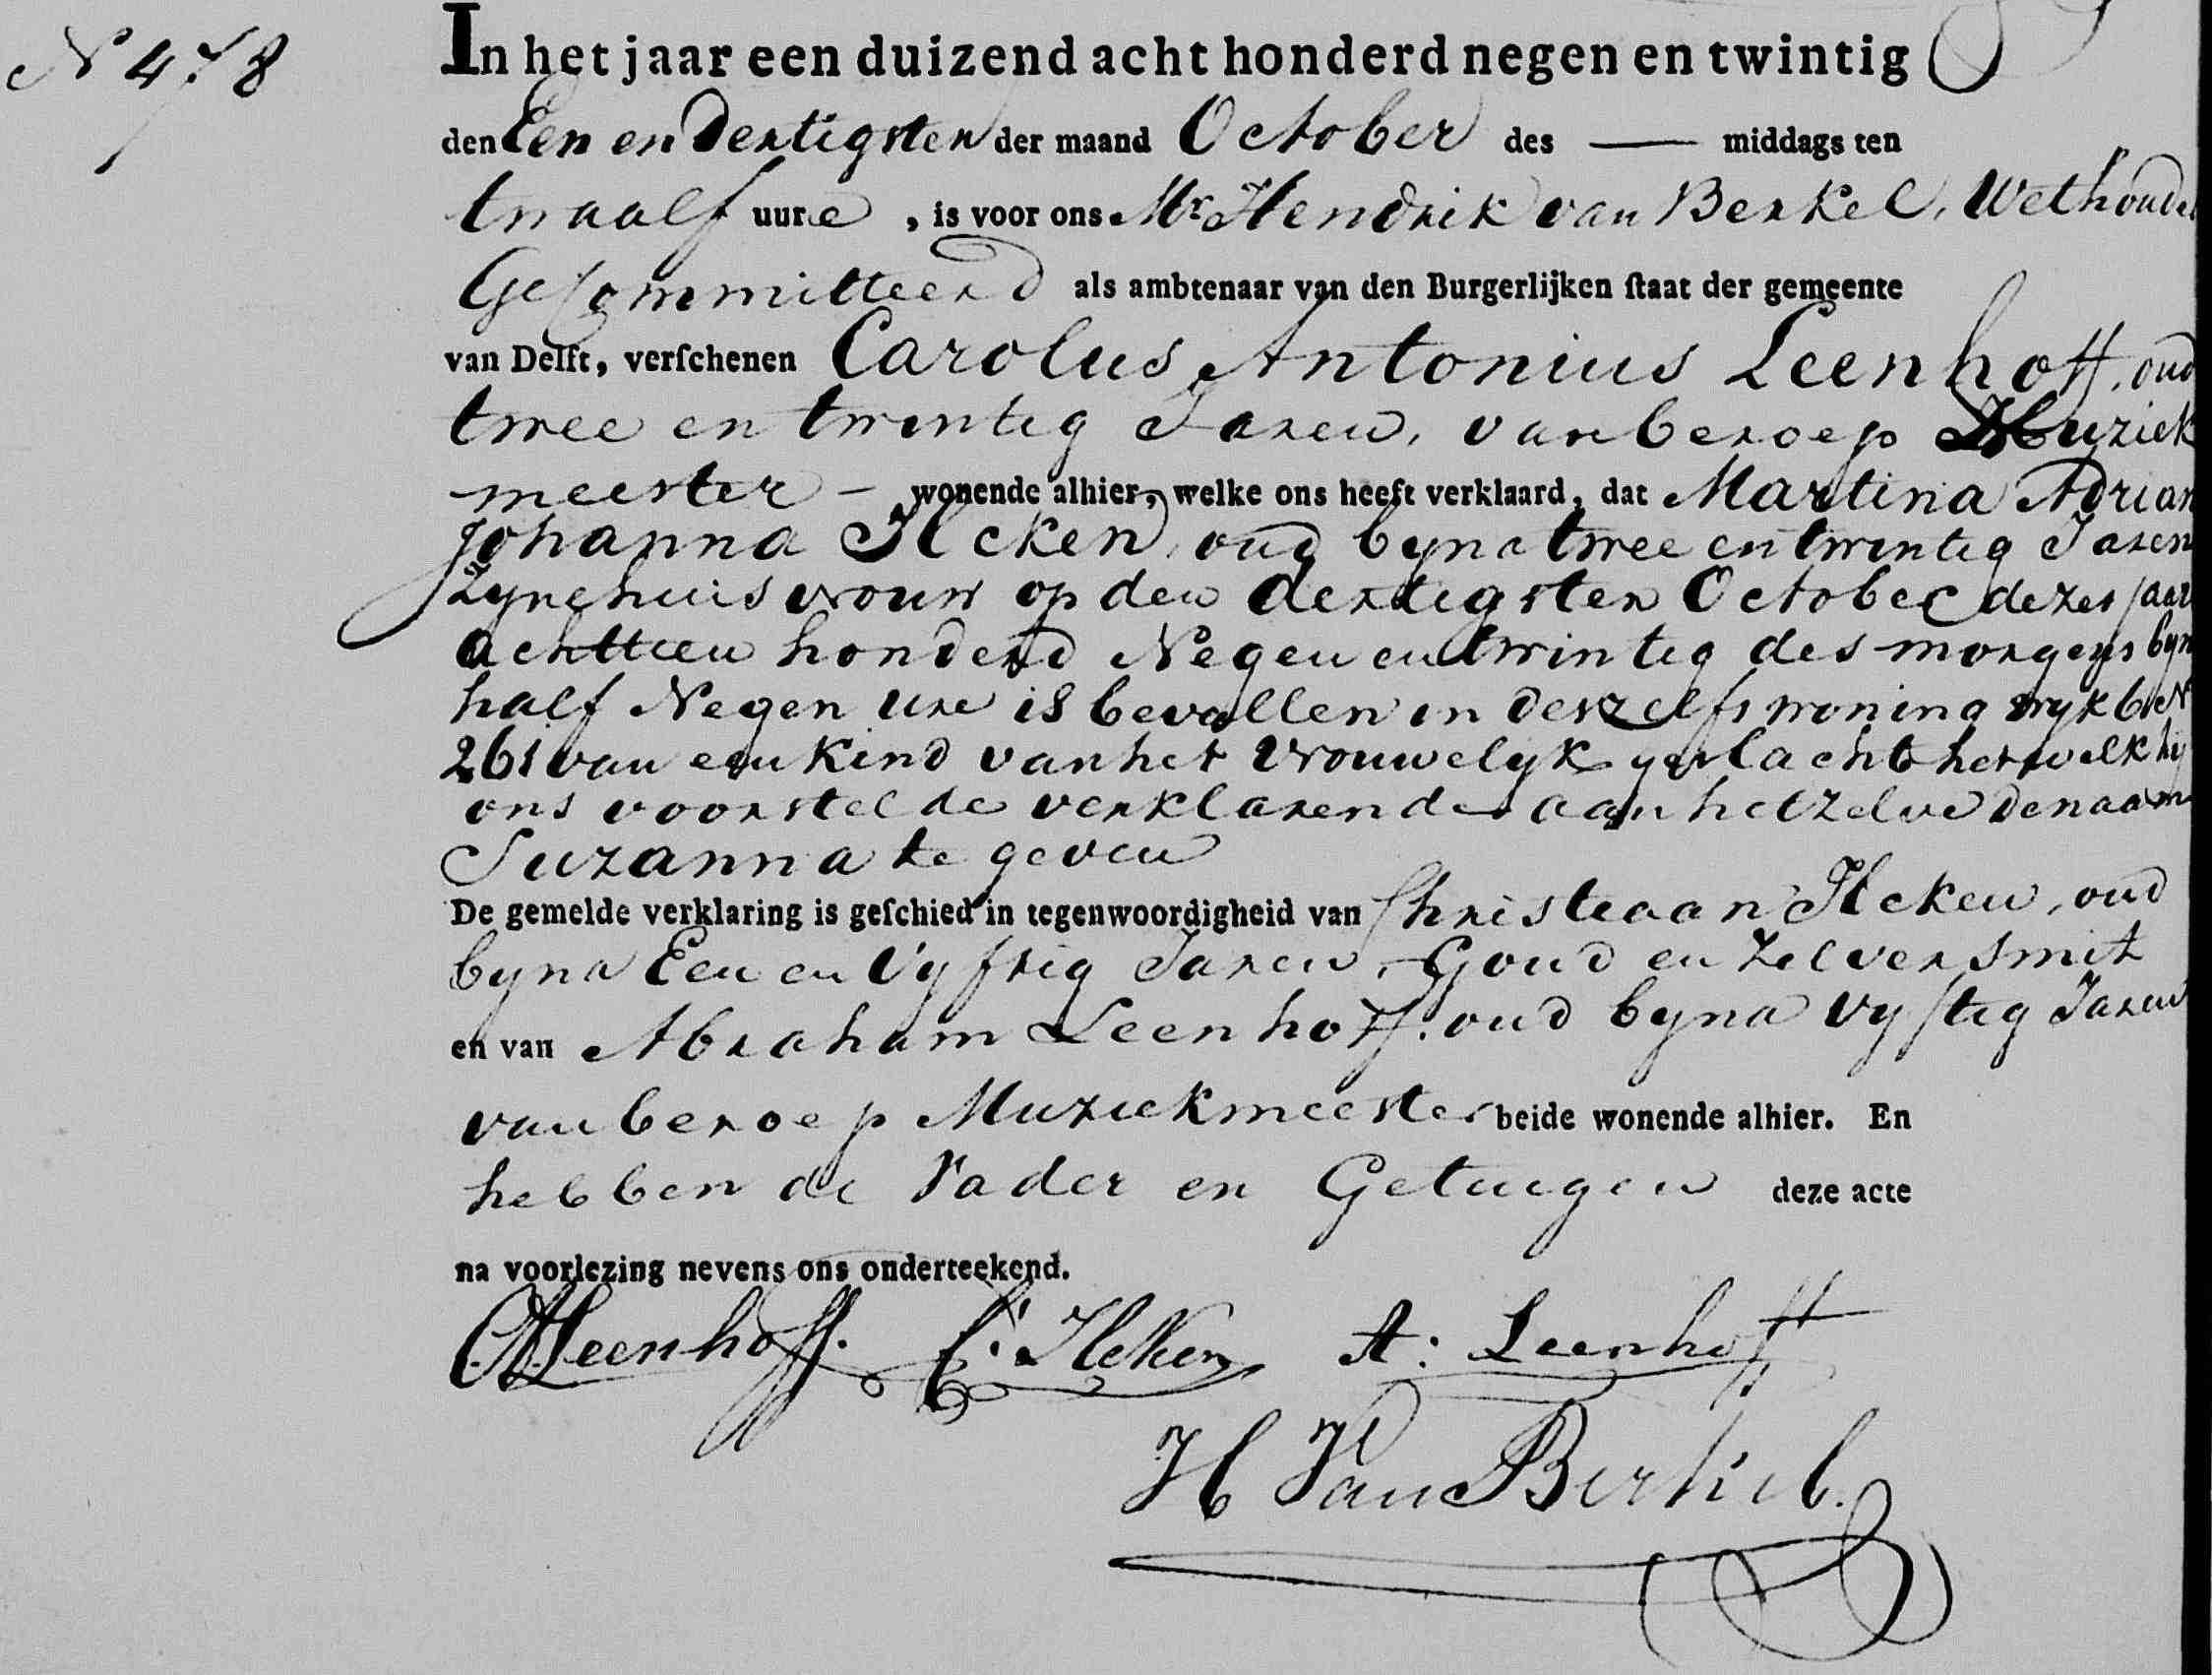 N 478
In het jaar een duizend acht honderd negen en twintig
den Een en Dertigsten der maand October des — middags ten
twaalf uure, is voor ons Mr. Hendrik van Berkel, Wethoude
Gecommitteerd als ambtenaar van den Burgerlijken ſtaat der gemeente
van Delft, verſchenen Carolus Antonius Leenhoff, oud
twee en twintig Jaren, van beroep Muziek
meester – wonende alhier, welke ons heeft verklaard, dat Martina Adrian
Johanna Ilcken, oud byna twee en twintig Jaren
Zyne huisvrouw op den dertigsten October dezes jaar
achttien honderd Negen en twintig des morgens byn
half Negen ure is bevallen in deszelfs woning wyk 6 N
261 van een kind van het vrouwelyk geslacht hetwelk hy
ons voorstelde verklarende aan hetzelve den naam
Suzanna te geven
De gemelde verklaring is geſchied in tegenwoordigheid van Christiaan Ilcken, oud
byna Een en Vyftig Jaren, Goud en Zilversmit
en van Abraham Leenhoff. oud byna vyftig Jaren
van beroep Muziekmeester beide wonende alhier. En
hebben de Vader en Getuigen deze acte
na voorlezing nevens ons onderteekend.
C.A. Leenhoff. C. Ilcken A: Leenhoff
H Van Berkel.